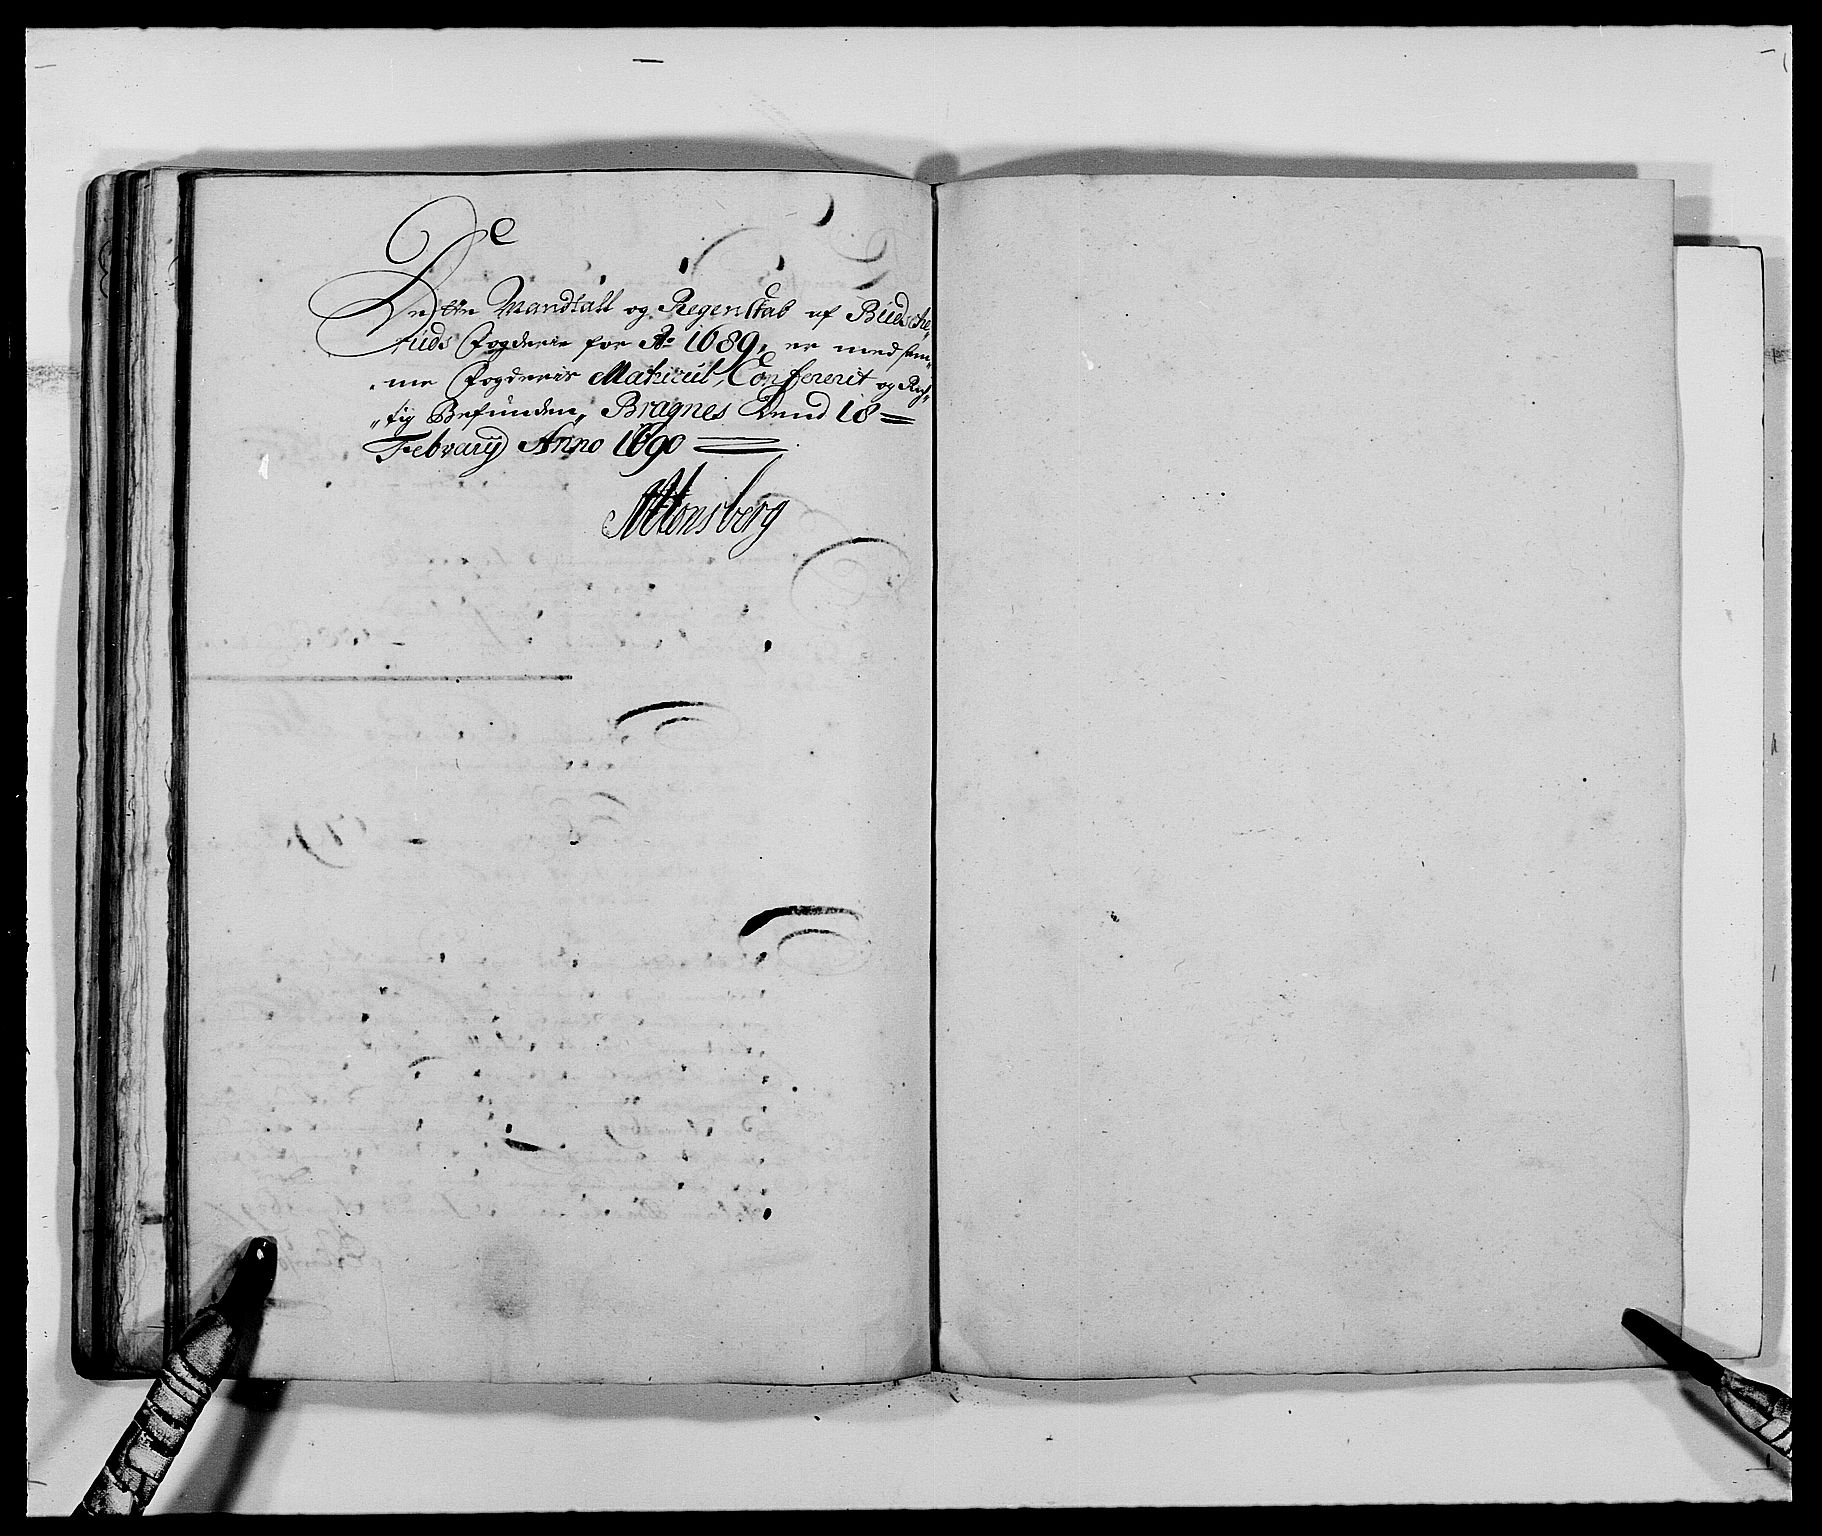 Dette Mandtall og Regenskab af Budsche„
ruds Fogderie for Ao 1689, er med sam„
me Fogderis Matricul, Confererit og Rig„
„tig Befunden, Bragnes Dend 18 =
Februarij Anno 1690